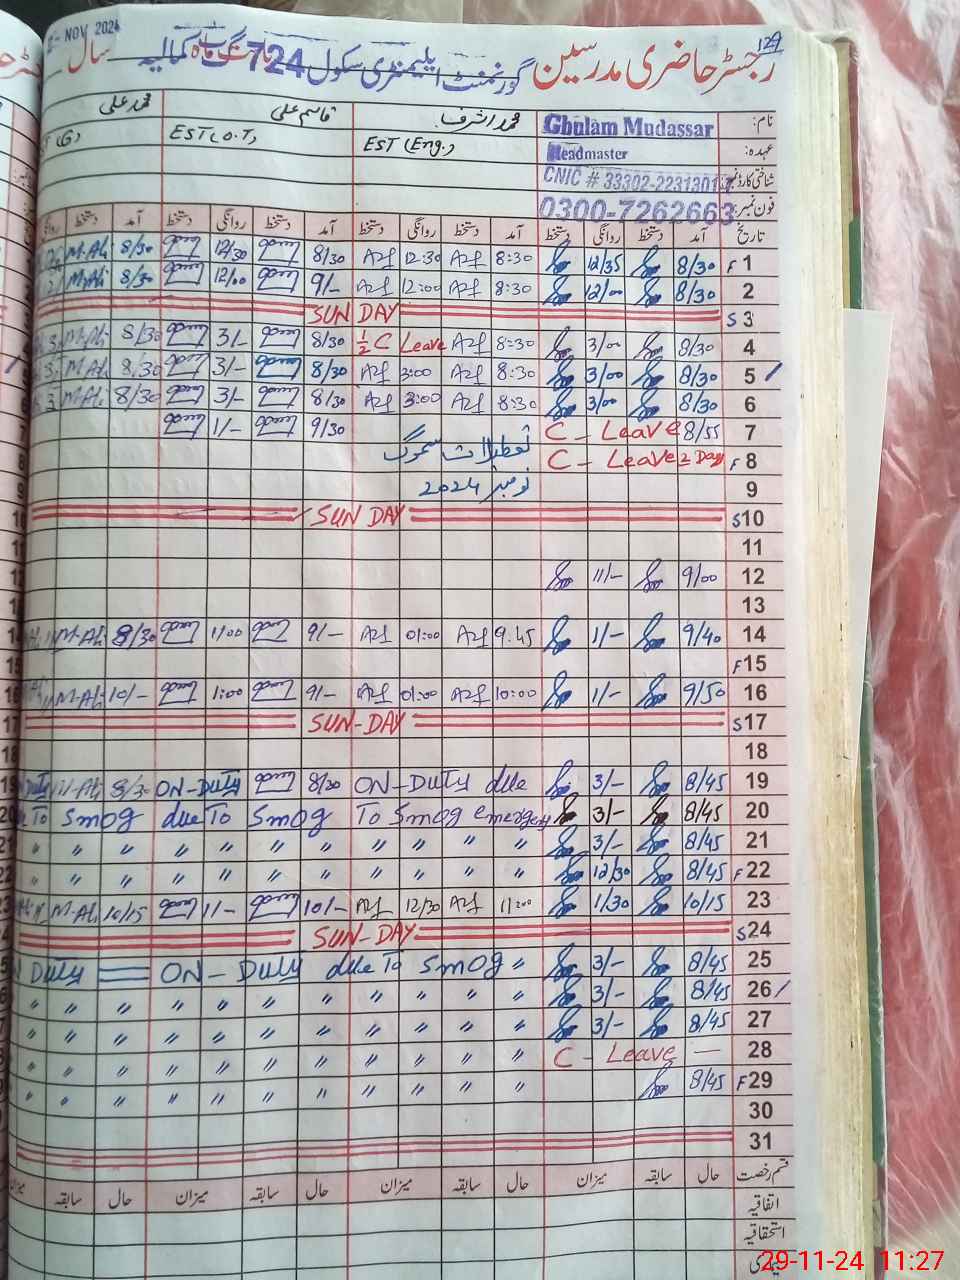 129
2 - NOV 2024
رجسٹر حاضری مدرسین گورنمنٹ ایلیمنٹری سکول 724 گ ب ماہ کمالیہ سال
نام: Ghulam Mudassar محمد اشرف قاسم علی محمد علی
عہدہ: Headmaster EST (Eng.) EST (O.T) (G)
شناختی کارڈ نمبر CNIC # 33302-2231301
فون نمبر: 0300-7262663
تاریخ آمد دستخط روانگی دستخط آمد دستخط روانگی دستخط آمد دستخط روانگی دستخط آمد دستخط
F 1 8/30 12/35 8:30 Azf 12:30 Azf 8/30 12/30 8/30 M-Ali
2 8/30 12/00 8:30 Azf 12:00 Azf 9/- 12/00 8/30 M-Ali
S 3 SUN DAY
4 8/30 3/00 8:30 Azf ½ C Leave 8/30 3/- 8/30 M-Ali
5 8/30 3/00 8:30 Azf 3:00 Azf 8/30 3/- 8/30 M-Ali
6 8/30 3/00 8:30 Azf 3:00 Azf 8/30 3/- 8/30 M-Ali
7 8/55 C - Leave 9/30 1/-
تعطیلات سموگ
F 8 C - Leave 2 Day
9 نومبر 2024
S10 SUN DAY
11
12 9/00 11/-
13
14 9/40 1/- 9:45 Azf 01:00 Azf 9/- 1/00 8/30 M-Ali
F15
16 9/50 1/- 10:00 Azf 01:00 Azf 9/- 1:00 10/- M-Ali
S17 SUN-DAY
18
19 8/45 3/- ON-DUTY due 8/30 ON-DUTY 8/30 M-Ali Duty
20 8/45 3/- To Smog emergency due To Smog To Smog
21 8/45 3/- 〃 〃 〃 〃 〃 〃 〃 〃 〃 〃
F22 8/45 12/30 〃 〃 〃 〃 〃 〃 〃 〃 〃 〃
23 10/15 1/30 11:00 Azf 12/30 Azf 10/- 1/- 10/15 M-Ali
S24 SUN-DAY
25 8/45 3/- ON-DUTY due To Smog 〃 Duty
26 8/45 3/- 〃 〃 〃 〃 〃 〃 〃 〃 〃 〃
27 8/45 3/- 〃 〃 〃 〃 〃 〃 〃 〃 〃 〃
28 C - Leave — 〃 〃 〃 〃 〃 〃 〃 〃 〃 〃
F29 8/45 〃 〃 〃 〃 〃 〃 〃 〃 〃 〃
30
31
قسم رخصت حال سابقہ میزان حال سابقہ میزان حال سابقہ میزان حال سابقہ میزان
اتفاقیہ
استحقاقیہ
29-11-24 11:27